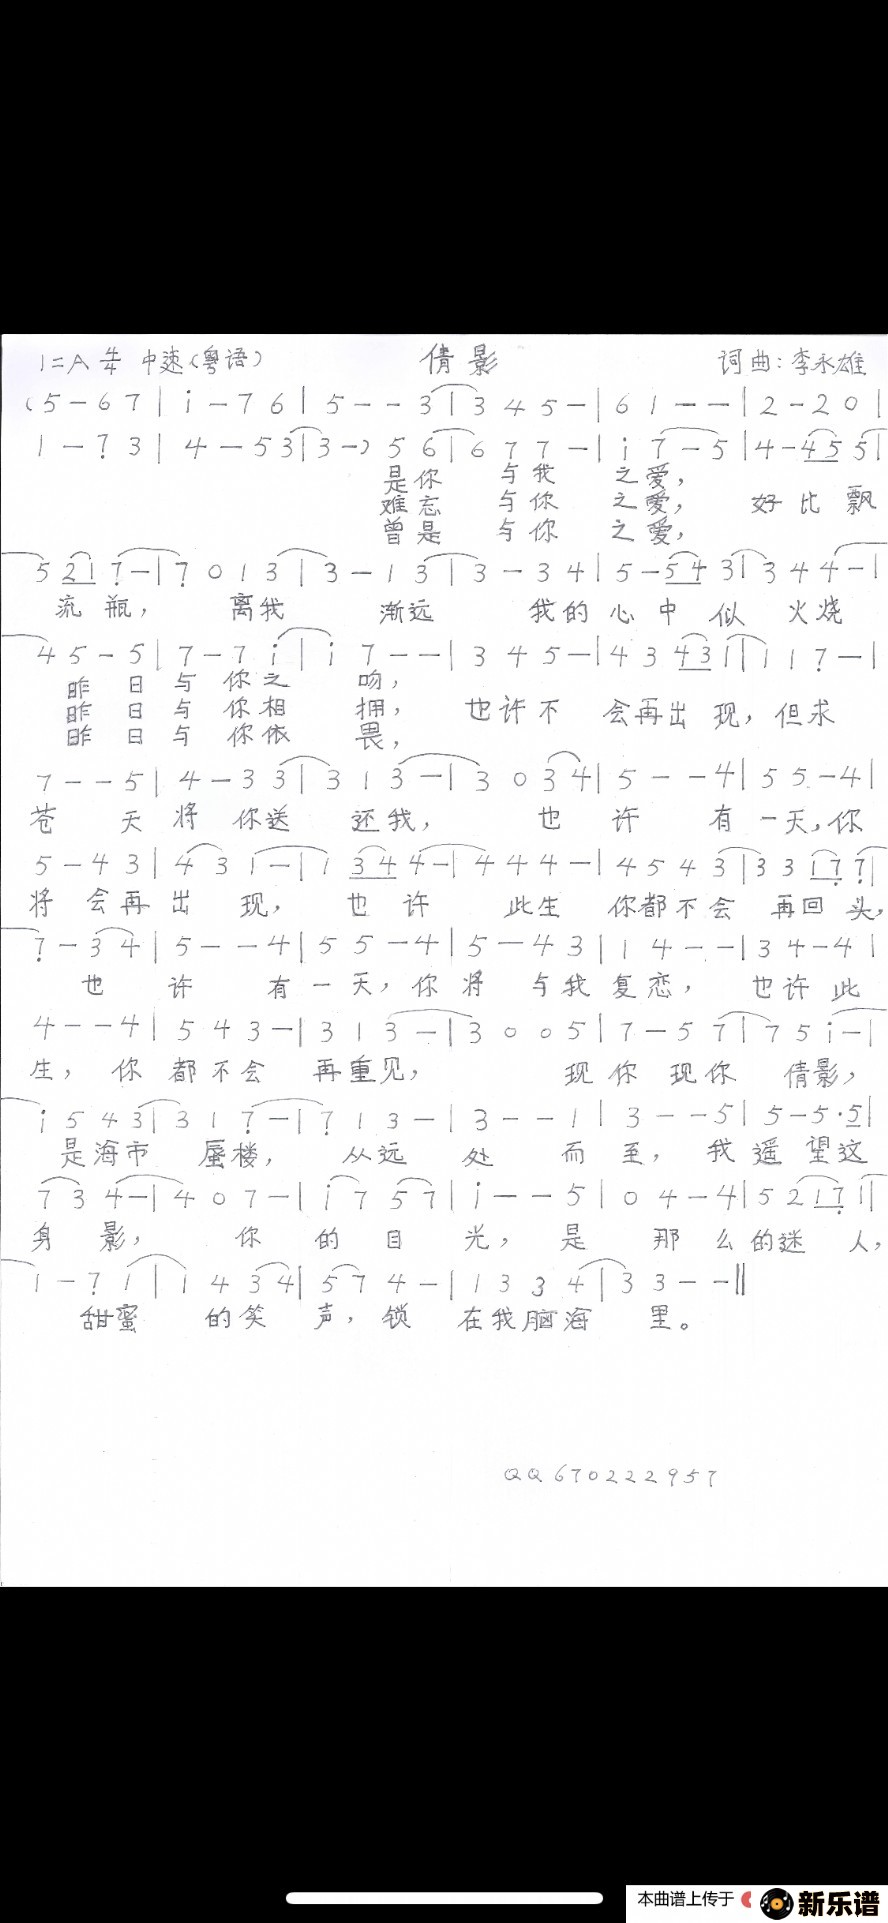 1=A 4/4 中速（粤语） 倩影 词曲：李永雄
(5 - 6 7 | i - 7 6 | 5 - - 3 | 3 4 5 - | 6 1 - - | 2 - 2 0 |
1 - 7̣ 3 | 4 - 5 3 | 3 - ) 5 6 | 6 7 7 - | i 7 - 5 | 4 - 4 5 5 |
是你 与我 之爱，
难忘 与你 之爱， 好比飘
曾是 与你 之爱，
5 2 1 7̣ - | 7̣ 0 1 3 | 3 - 1 3 | 3 - 3 4 | 5 - 5 4 3 | 3 4 4 - |
流瓶， 离我 渐远 我的心中似 火烧
4 5 - 5 | 7 - 7 i | i 7 - - | 3 4 5 - | 4 3 4 3 1 | 1 1 7̣ - |
昨日与你之 吻，
昨日与你相 拥， 也许不 会再出现，但求
昨日与你依 畏，
7 - - 5 | 4 - 3 3 | 3 1 3 - | 3 0 3 4 | 5 - - 4 | 5 5 - 4 |
苍 天将你送 还我， 也许 有一天，你
5 - 4 3 | 4 3 1 - | 1 3 4 4 - | 4 4 4 - | 4 5 4 3 | 3 3 1 7̣ 7̣ |
将会再出现， 也许 此生 你都不会 再回头，
7̣ - 3 4 | 5 - - 4 | 5 5 - 4 | 5 - 4 3 | 1 4 - - | 3 4 - 4 |
也许 有一天，你将 与我复恋， 也许此
4 - - 4 | 5 4 3 - | 3 1 3 - | 3 0 0 5 | 7 - 5 7 | 7 5 i - |
生，你都不会 再重见， 现你现你 倩影，
i 5 4 3 | 3 1 7̣ - | 7̣ 1 3 - | 3 - - 1 | 3 - - 5 | 5 - 5 · 5 |
是海市 蜃楼， 从远处 而至， 我遥望这
7 3 4 - | 4 0 7 - | i 7 5 7 | i - - 5 | 0 4 - 4 | 5 2 1 7̣ 1 |
身影， 你的目光，是 那么的迷人，
1 - 7̣ 1 | 1 4 3 4 | 5 7 4 - | 1 3 3 4 | 3 3 - - ‖
甜蜜 的笑声，锁 在我脑海 里。
QQ 670222957
本曲谱上传于 新乐谱